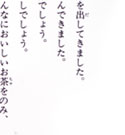 を出してきました。
んできました。
でしょう。
しでしょう。
んなにおいしいお茶をのみ、